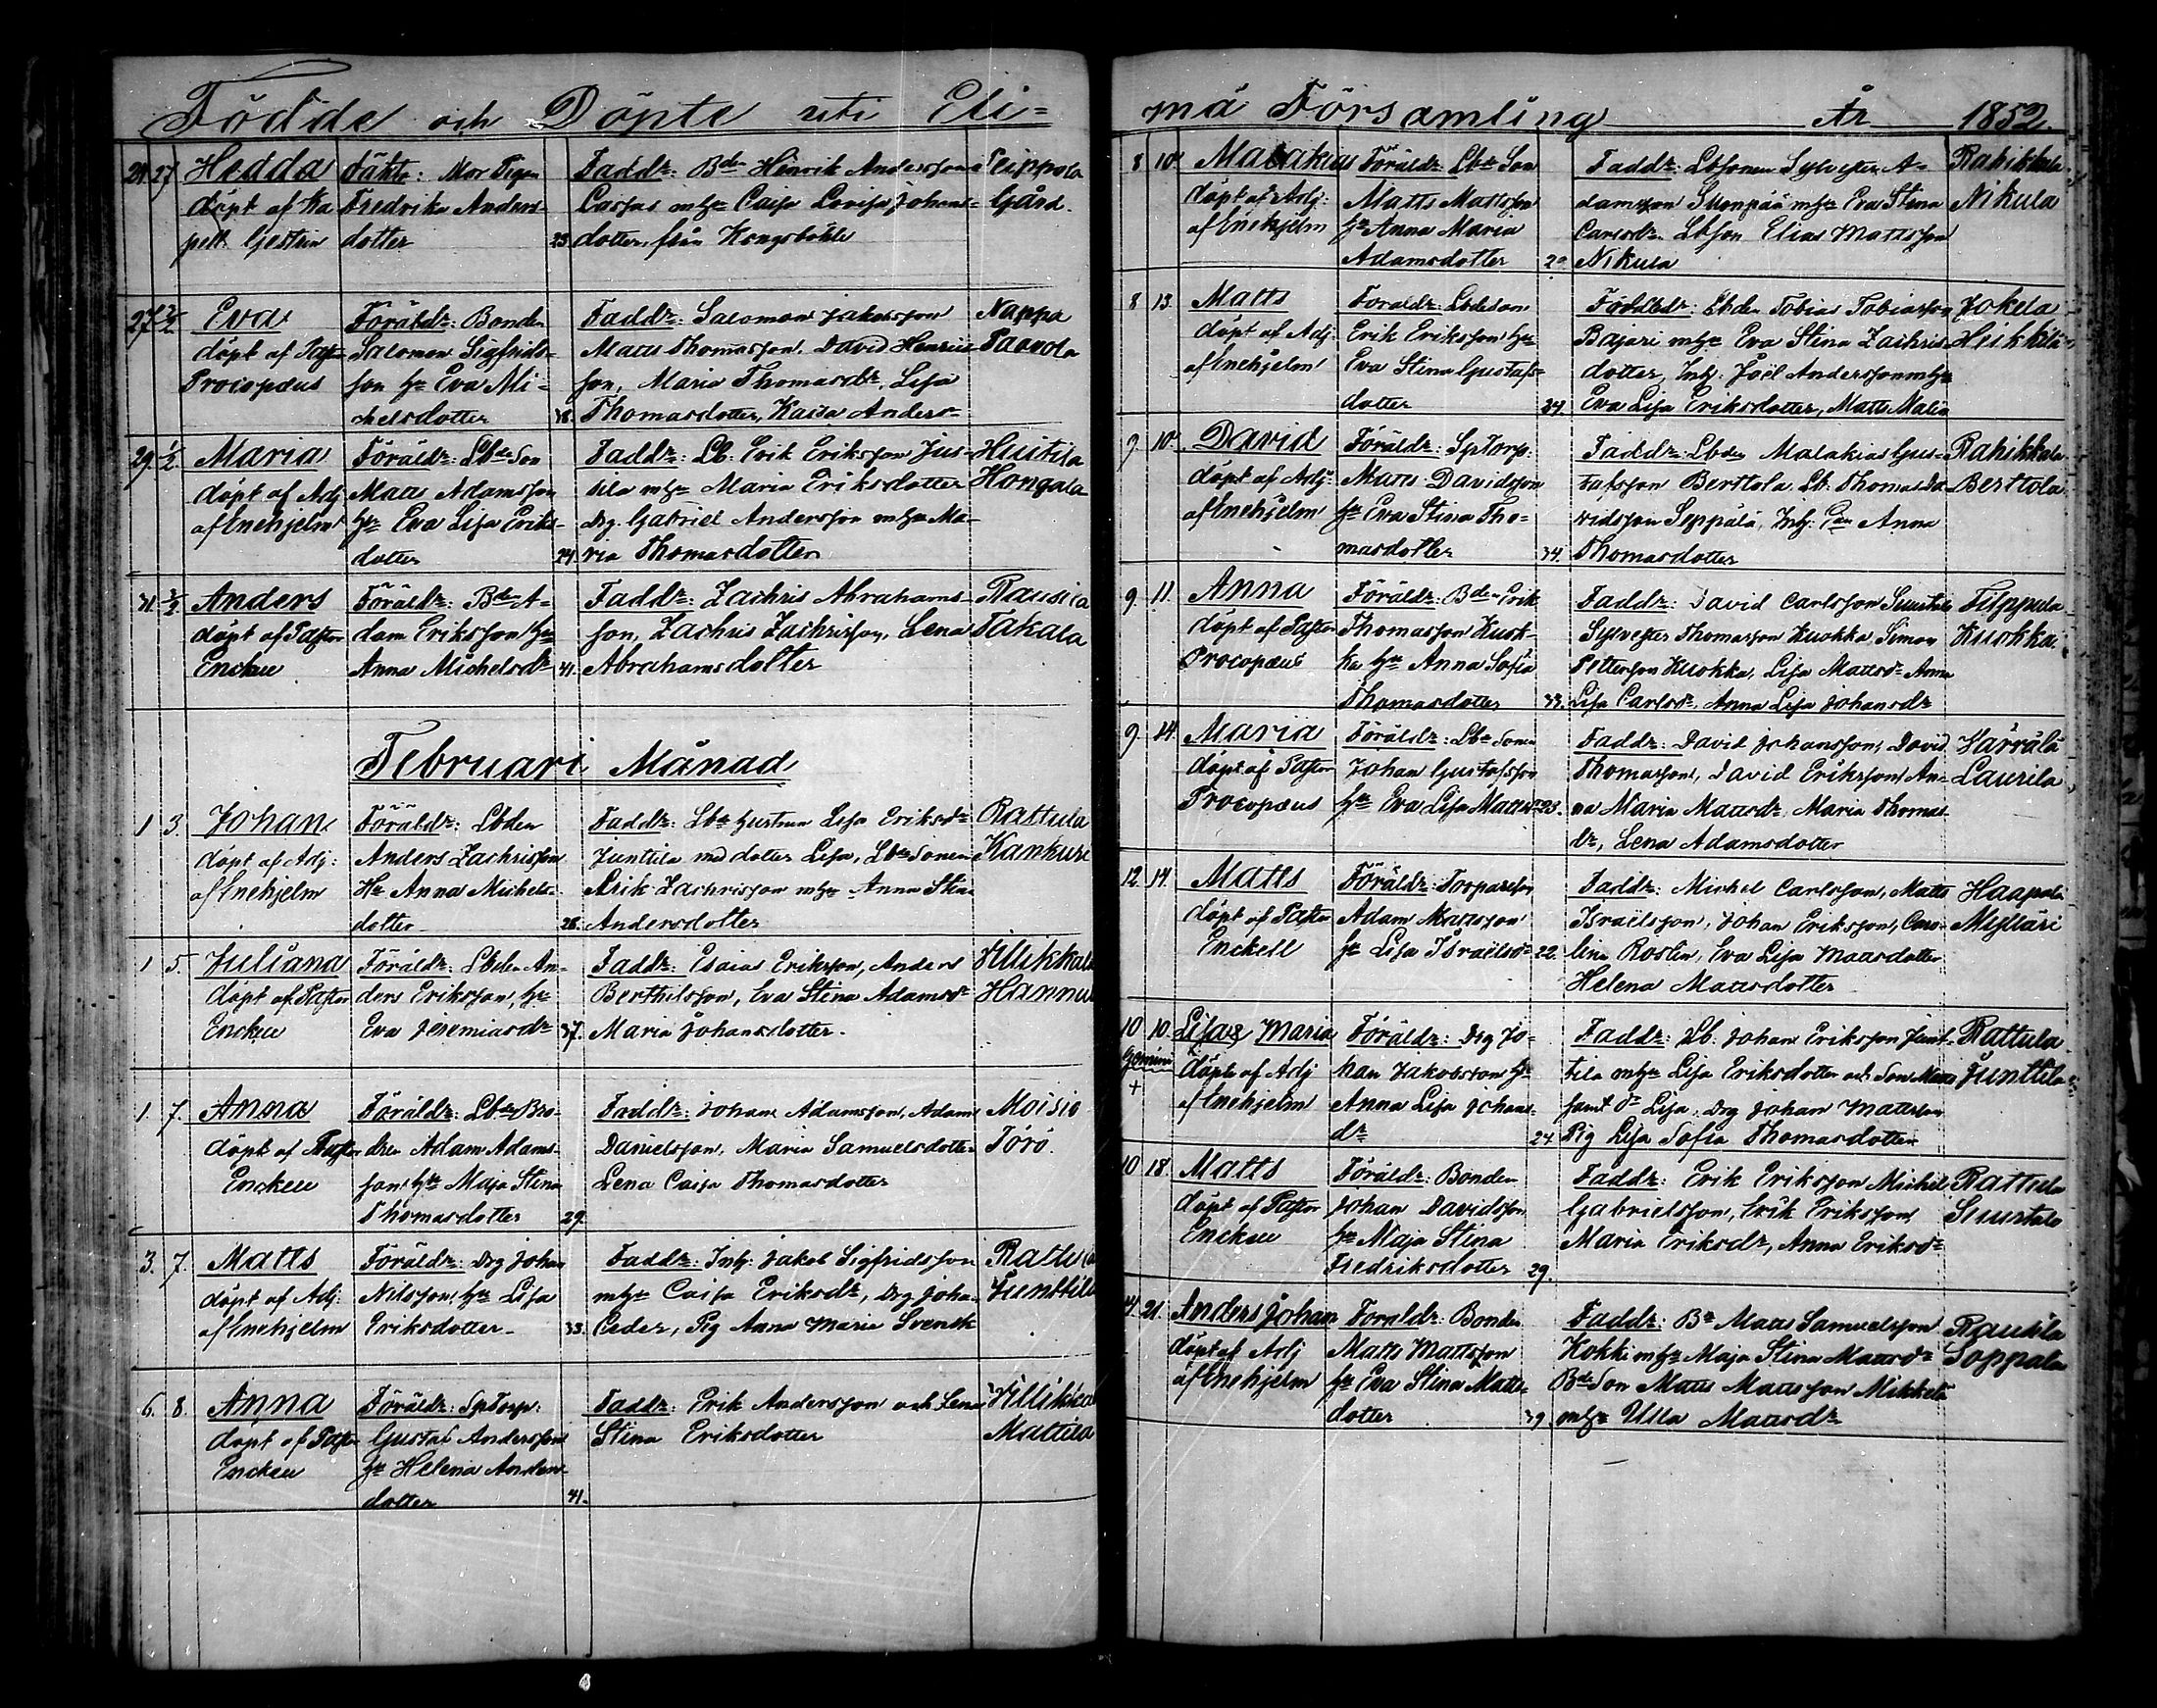 Födde och Döpte uti Eli=
24. 27. Hedda Fäkta: Mor Pigan Faddr: Bdn Henrik Andersson Peippola
döpt af Ka Fredrika Anders- Casjas mhu Caisa Lovisa Johans- Gård.
pell. Gestrin dotter 23. dotter, från Kongsböhle
27. 2/2 Eva Föräldr: Bonden Faddr: Salomon Jakobsson Nappa
döpt af Pastor Salomon Sigfrids- Matts Thomasson, David Henrics Paavola
Procopæus son hu Eva Mi- son, Maria Thomasdr, Lisa
chelsdotter 38. Thomasdotter, Kaisa Anders-
29. 1/2 Maria Föräldr: Lbde Son Faddr: Lb. Erik Eriksson Jus- Huitila
döpt af Adj Matts Adamsson tila mhu Maria Eriksdotter Hongala
af Enehjelm hu Eva Lisa Eriks- drg. Gabriel Andersson mhu Ma-
dotter 24. ria Thomasdotter
31. 2/2 Anders Föräldr: Bden A- Faddr: Zachris Abrahams- Rausila
döpt af Pastor dam Eriksson hu son, Zachris Zachrisson, Lena Takala
Enckell Anna Michelsdr 41. Abrahamsdotter
Februari Månad
1 3. Johan Föräldr: Lbden Faddr: Lbde hustrun Lisa Eriksdr Rattula
döpt af Adj: Anders Zachrisson Juntula med dotter Lisa, Lbde Sonen Kankuri
af Enehjelm Hu Anna Michels- Erik Zachrisson mhu Anna Stina
dotter 28. Andersdotter
1 5. Juliana Föräldr: Lbden An- Faddr: Esaias Eriksson, Anders Villikkala
döpt af Pastor ders Eriksson, hu Berthelsson, Eva Stina Adamsdr Hannula
Enckell Eva Jeremiasdr 37. Maria Johansdotter.
1. 7. Anna Föräldr: Lbde Bro- Faddr: Johan Adamsson, Adam Moisio
döpt af Pastor dren Adam Adams- Danielsson, Maria Samuelsdotter Törö.
Enckell son hu Maja Stina Lena Caisa Thomasdotter
Thomasdotter 29.
3. 7. Matts Föräldr: Drg Johan Faddr: Inh: Jakob Sigfridsson Rattula
döpt af Adj: Nilsson, hu Lisa mhu Caisa Eriksdr, Drg Johan Junttila
af Enehjelm Eriksdotter 33. Ceder, Pig Anna Maria Svensk
6. 8. Anna Föräldr: SpTorp: Faddr: Erik Andersson och Lena Villikkala
döpt af Pastor Gustaf Andersson Stina Eriksdotter Mattila
Enckell hu Helena Anders-
dotter 41.
mä Församling År 1852.
8 10. Malakias Föräldr: Lbde Son Faddr: Lbsonen Sylvester A- Rahikkala
döpt af Adj: Matts Mattsson damsson Suonpää mhu Eva Stina Nikula
af Enehjelm hu Anna Maria Carlsdr. Lbson Elias Mattsson
Adamsdotter 20 Nikula
8 13. Matts Föräldr: Lbdeson Föräldr: Lbden Tobias Tobiasson Jokela
döpt af Adj: Erik Eriksson hu Bajari mhu Eva Stina Zachris- Heikkilä
af Enehjelm Eva Stina Gustafs- dotter, Inh: Joël Andersson mhu
dotter 34. Eva Lisa Eriksdotter, Matts Malin
9. 10. David Föräldr: SpTorp: Faddr: Lbden Malakias Gus- Rahikkala
döpt af Adj: Matts Davidsson tafsson Berttola Lb. Thomas Da Berttola
af Enehjelm hu Eva Stina Tho- vidsson Seppälä, Inh: Anna
masdotter 34. Thomasdotter
9. 11. Anna Föräldr: Bden Erik Faddr: David Carlsson Filppula
döpt af Pastor Thomasson Kuok- Sylvester Thomasson Kuokka, Simon Kuokka.
Procopæus ka hu Anna Sofia Pettersson Kuokka, Lisa Mattsdr Anna
Thomasdotter 33. Lisa Carlsdr, Anna Lisa Johansdr
9. 14. Maria Föräldr: Lbde Sonen Faddr: David Johansson, David Värrälä
döpt af Pastor Johan Gustafsson Thomasson, David Eriksson, An- Laurila
Procopæus hu Eva Lisa Mattsdr 23. na Maria Mattsdr, Maria Thomas-
dr, Lena Adamsdotter
12. 14. Matts Föräldr: Adam Mattsson Faddr: Michel Carlsson, Matts Haapala
döpt af Pastor Israëlsson, Johan Eriksson, Caro-
Enckell hu Lisa Israëlsdr 22. lina Roslin, Eva Lisa Mattsdotter
Helena Mattsdotter
10 10. Lisa & Maria Föräldr: Drg Jo- Faddr: Lb. Johan Eriksson Junt- Rattula
Gemini döpte af Adj han Jakobsson hu tila mhu Lisa Eriksdotter och Son Matts Junttila
+ af Enehjelm Anna Lisa Johans- samt dr Lisa, Drg Johan Mattsson
dr 24. Pig Lisa Sofia Thomasdotter
10 18. Matts Föräldr: Bonden Faddr: Erik Eriksson Michel Rattula
döpt af Pastor Johan Davidsson Gabrielsson, Erik Eriksson, Suurtalo
Enckell hu Maja Stina Maria Eriksdr, Anna Eriksdr
Fredriksdotter 29.
14. 21. Anders Johan Föräldr: Bonden Faddr: Bn Matts Samuelsson Rausila
döpt af Adj Matts Mattsson Kokki mhu Maja Stina Mattsdr Soppala
af Enehjelm hu Eva Stina Matts- Bde Son Matts Mattsson Mikkelä
dotter 39. mhu Ulla Mattsdr